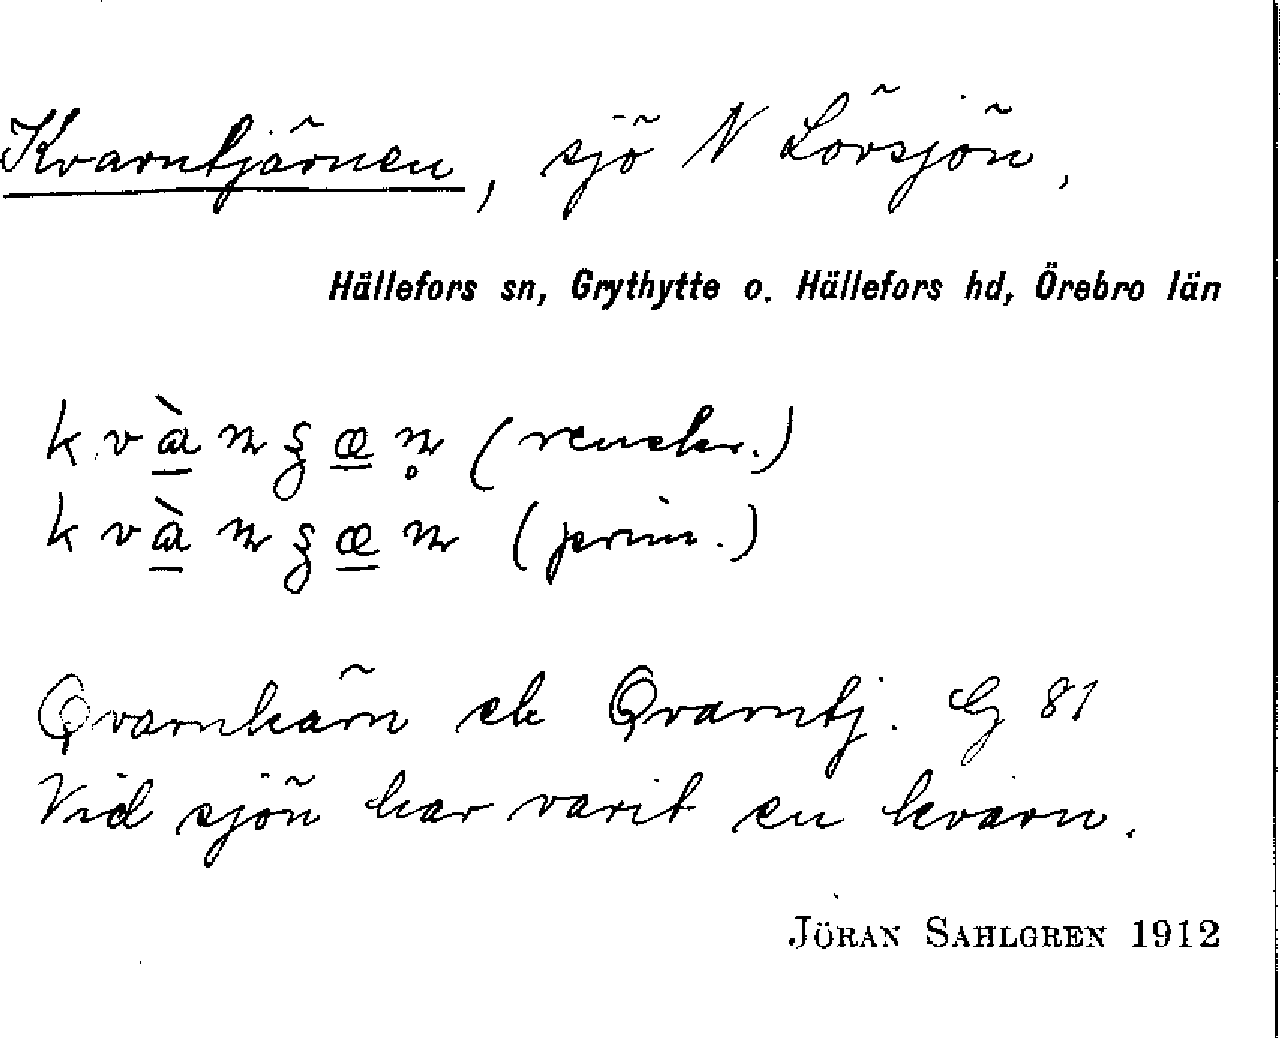 Kvarntjärnen, sjö N Lövsjön,
Hällefors sn, Grythytte o. Hällefors hd, Örebro län
(renskr.)
(prim.)
Qvarnkärn ek Qvarntj. G 81
Vid sjön har varit en kvarn.
JÖRAN SAHLGREN 1912